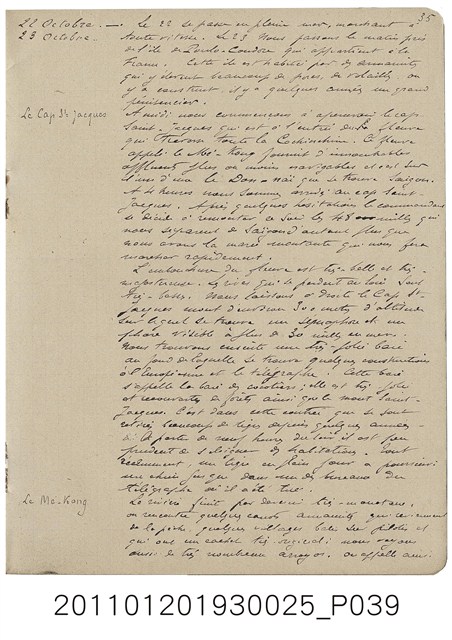 35
22 Octobre. — Le 22 se passe en pleine mer, marchant à
23 Octobre — toute vitesse. Le 23 nous passons le matin près
de l'île de Poulo-Condor qui appartient à la
France. Cette île est habitée par des annamites
qui y élèvent beaucoup de porcs, de volailles. on
y a construit il y a quelques années un grand
pénitencier.
Le Cap St Jacques
A midi nous commençons à apercevoir le cap
Saint-Jacques qui est à l'entrée du fleuve
qui traverse toute la Cochinchine. Ce fleuve
appelé le Mé-Kong fournit d'innombrables
affluents plus ou moins navigables et c'est sur
l'un d'eux le Don-naï que se trouve Saigon.
A 4 heures nous sommes arrivés au cap Saint-
Jacques. Après quelques hésitations le commandant
se décide à remonter ce soir les 48 milles qui
nous séparent de Saïgon d'autant plus que
nous avons la marée montante qui nous fera
marcher rapidement.
L'embouchure du fleuve est très-belle et très-
majestueuse. les rives qui se perdent au loin sont
très-basses. Nous laissons à droite le Cap St-
Jacques mont d'environ 300 mètres d'altitude
sur lequel se trouve un sémaphore et un
phare visible à plus de 30 milles en mer.
Nous trouvons ensuite une très-jolie baie
au fond de laquelle se trouve quelques constructions
à l'Européenne et le télégraphe. Cette baie
s'appelle la baie des cocotiers; elle est très jolie
et recouverte de forêts ainsi que le mont Saint-
Jacques. C'est dans cette contrée que se sont
retirés beaucoup de tigres depuis quelques années-
A partir de neuf heures du soir il est peu
prudent de s'éloigner des habitations. Tout
récemment, un tigre en plein jour a poursuivi
un chien jusque dans un des bureaux du
télégraphe où il a été tué.
Le Mé-Kong
La rivière finit par devenir très-monotone.
on rencontre quelques canots annamites qui reviennent
de la pêche, quelques villages bâtis sur pilotis et
qui ont un cachet très-spécial: nous voyons
aussi de très nombreux arroyos. on appelle ainsi
201101201930025_P039